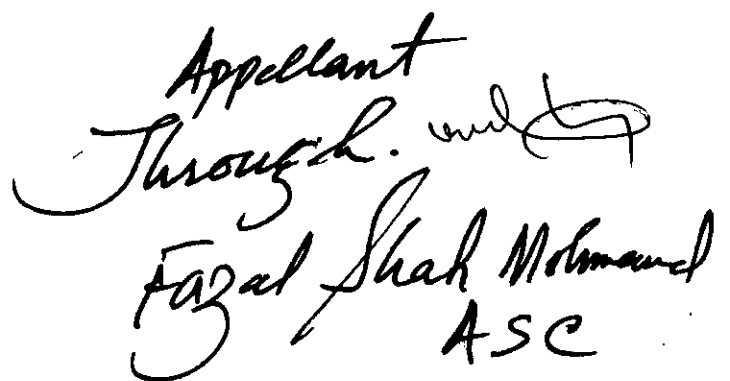 Appellant
Through.
Fazal Shah Mohmand
ASC